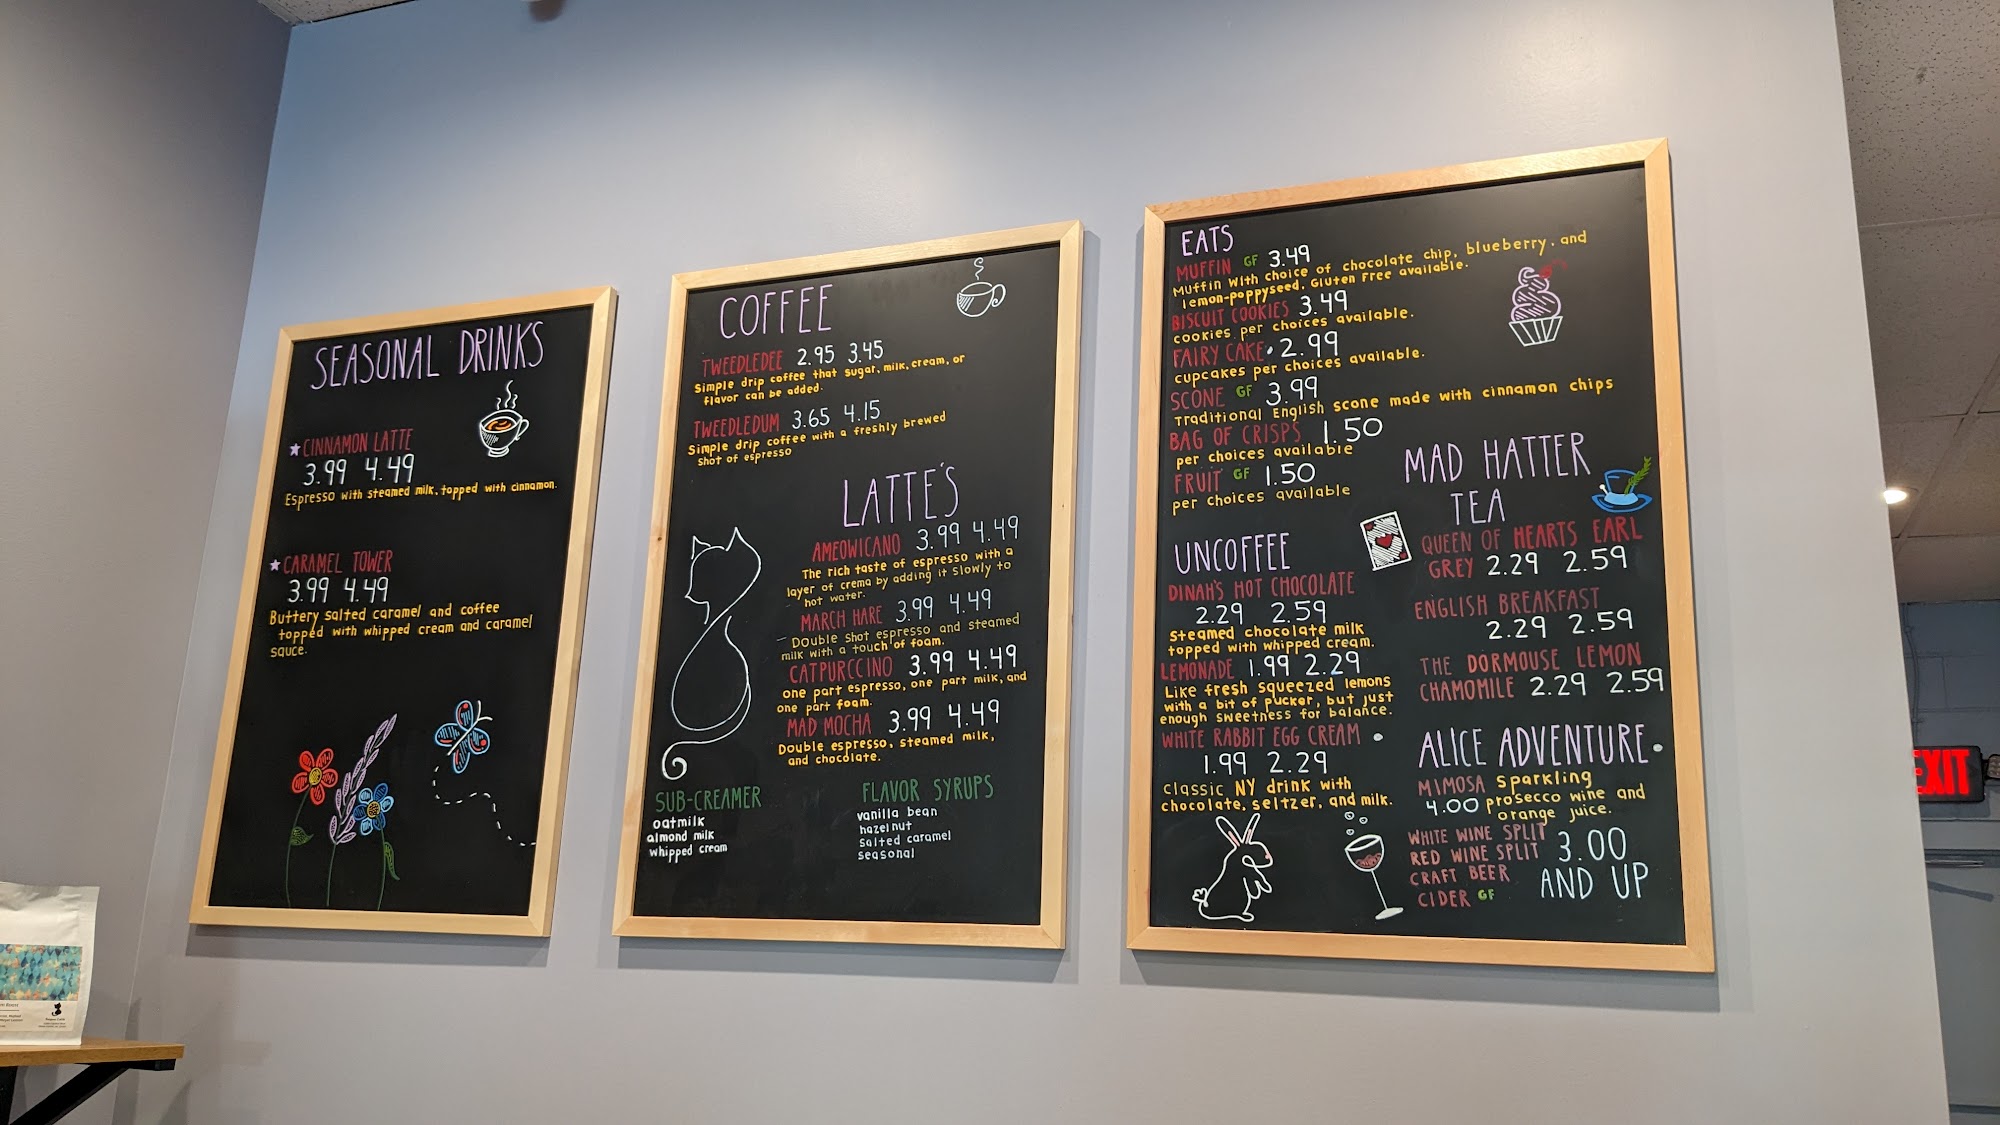 SEASONAL DRINKS
CINNAMON LATTE
3.99 4.49
Espresso with steamed milk, topped with cinnamon.
CARAMEL TOWER
3.99 4.49
Buttery salted caramel and coffee
topped with whipped cream and caramel
sauce.
COFFEE
TWEEDLEDEE 2.95 3.45
Simple drip coffee that sugar, milk, cream, or
flavor can be added.
TWEEDLEDUM 3.65 4.15
Simple drip coffee with a freshly brewed
shot of espresso
LATTE'S
AMEOWICANO 3.99 4.49
The rich taste of espresso with a
layer of crema by adding it slowly to
hot water.
MARCH HARE 3.99 4.49
Double shot espresso and steamed
milk with a touch of foam.
CATPURCCINO 3.99 4.49
one part espresso, one part milk, and
one part foam.
MAD MOCHA 3.99 4.49
Double espresso, steamed milk,
and chocolate.
SUB-CREAMER
oatmilk
almond milk
whipped cream
FLAVOR SYRUPS
vanilla bean
hazelnut
salted caramel
seasonal
EATS
MUFFIN GF 3.49
Muffin with choice of chocolate chip, blueberry, and
lemon-poppyseed. Gluten Free available.
BISCUIT COOKIES 3.49
cookies per choices available.
FAIRY CAKE • 2.99
cupcakes per choices available.
SCONE GF 3.99
Traditional English scone made with cinnamon chips
BAG OF CRISPS 1.50
per choices available
FRUIT GF 1.50
per choices available
UNCOFFEE
DINAH'S HOT CHOCOLATE
2.29 2.59
Steamed chocolate milk
topped with whipped cream.
LEMONADE 1.99 2.29
Like fresh squeezed lemons
with a bit of pucker, but just
enough sweetness for balance.
WHITE RABBIT EGG CREAM •
1.99 2.29
Classic NY drink with
chocolate, seltzer, and milk.
MAD HATTER
TEA
QUEEN OF HEARTS EARL
GREY 2.29 2.59
ENGLISH BREAKFAST
2.29 2.59
THE DORMOUSE LEMON
CHAMOMILE 2.29 2.59
ALICE ADVENTURE •
MIMOSA Sparkling
4.00 prosecco wine and
orange juice.
WHITE WINE SPLIT
RED WINE SPLIT 3.00
CRAFT BEER AND UP
CIDER GF
EXIT